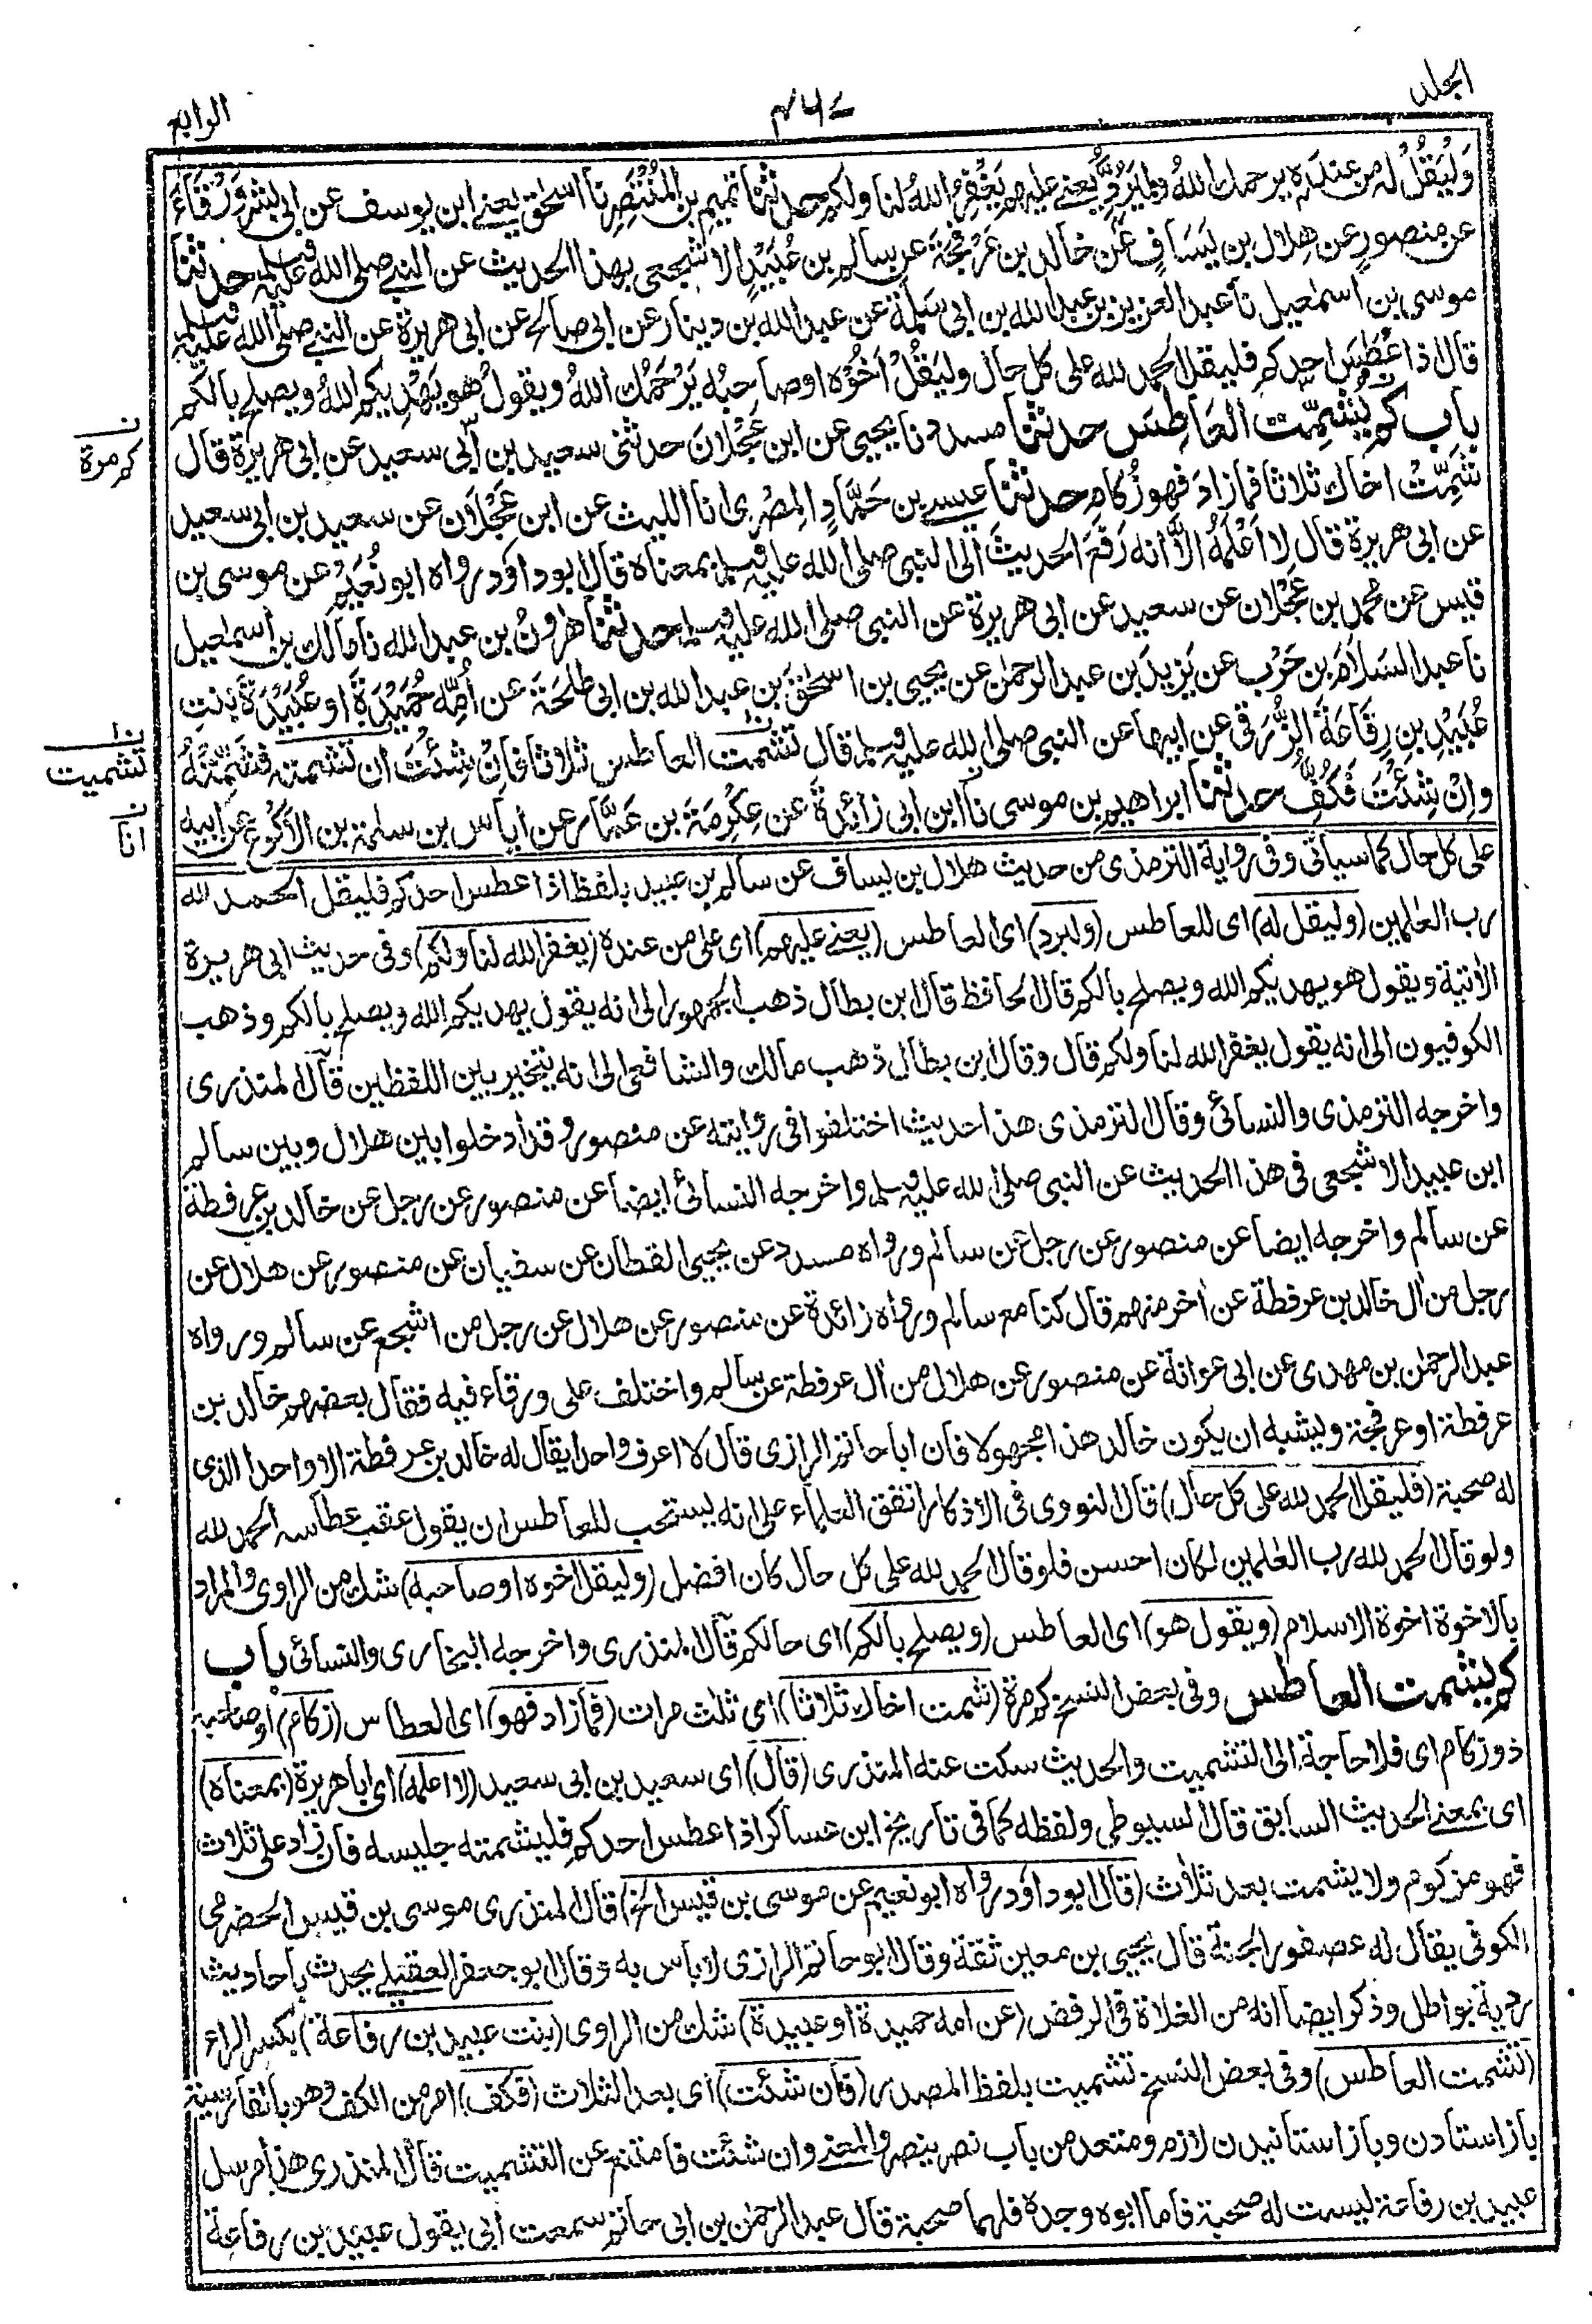 المجلد
٤٦٧
الرابع
وَلْيَقُلْ له من عنده يرحمك اللهُ وليَرُدَّ يعنى عليهم يَغْفِرُ اللهُ لنا ولكم حدثنا تميم بن المُنْتَصِر نا اسحٰق يعنى ابن يوسف عن ابى بشر وَرْقَاءَ
عن منصورٍ عن هلال بن يَسَافٍ عن خالد بن عَرْفَجَةَ عن سالم بن عُبَيْدٍ الاشجعى بهذا الحديث عن النبى صلى الله عليه وسلم حدثنا
موسى بن اسمٰعيل نا عبد العزيز بن عبد الله بن ابى سَلَمة عن عبد الله بن دينار عن ابى صالح عن ابى هريرة عن النبى صلى الله عليه وسلم
قال اذا عَطَسَ احدكم فليقل الحمد لله على كل حال وليَقُلْ اَخُوْه او صاحبُه يَرْحَمُك اللهُ ويقولُ هو يَهْدِيكم اللهُ ويصلح بالكم
باب كم يُشَمِّت العَاطِس حدثنا مسدد نا يحيى عن ابن عَجْلَانَ حدثنى سعيد بن ابى سعيد عن ابى هريرة قال
شَمِّتْ اخاك ثلاثا فما زادَ فهو زُكام حدثنا عيسى بن حَمَّادٍ المِصْرى انا الليث عن ابن عَجْلَان عن سعيد بن ابى سعيد
عن ابى هريرة قال لا اَعْلَمُهُ الَّا انه رَفَعَ الحديثَ الى النبى صلى الله عليه وسلم بمعناه قال ابو داؤد رواه ابو نُعَيْم عن موسى بن
قيس عن محمد بن عَجْلان عن سعيد عن ابى هريرة عن النبى صلى الله عليه وسلم حدثنا هرونُ بن عبد الله نا مالك بن اسمٰعيل
نا عبد السَلَام بن حَرْب عن يَزِيدَ بن عبد الرحمٰن عن يحيى بن اسحٰقَ بن عبد الله بن ابى طلحَةَ عن اُمِّه حُمَيْدَةَ او عُبَيْدَةَ بنتِ
عُبَيْدِ بن رِفَاعَةَ الزُّرَقى عن ابيها عن النبى صلى الله عليه وسلم قال تشمت العاطس ثلاثا فانْ شِئْتَ ان تشمته فشَمِّتْهُ
وانْ شِئْتَ فكُفَّ حدثنا ابراهيم بن موسى نا ابن ابى زائدةَ عن عِكْرِمَةَ بن عَمَّار عن اياس بن سلمة بن الاَكْوَع عن ابيه
كم مرة
تشميت
انا
على كل حال كما سياتى وفى رواية الترمذى من حديث هلال بن يساف عن سالم بن عبيد بلفظ اذا عطس احدكم فليقل الحمد لله
رب العٰلمين (وليقل له) اى للعاطس (وليرد) اى العاطس (يعنى عليهم) اى على من عنده (يغفر الله لنا ولكم) وفى حديث ابى هريرة
الاٰتية ويقول هو يهديكم الله ويصلح بالكم قال الحافظ قال ابن بطال ذهب الجمهور الى انه يقول يهديكم الله ويصلح بالكم وذهب
الكوفيون الى انه يقول يغفر الله لنا ولكم قال وقال ابن بطال ذهب مالك والشافعى الى انه يتخير بين اللفظين قال المنذرى
واخرجه الترمذى والنسائى وقال الترمذى هذا حديث اختلفوا فى روايته عن منصور وقد ادخلوا بين هلال وبين سالم
ابن عبيد الاشجعى فى هذا الحديث عن النبى صلى الله عليه وسلم واخرجه النسائى ايضا عن منصور عن رجل عن خالد بن عرفطة
عن سالم واخرجه ايضا عن منصور عن رجل عن سالم ورواه مسدد عن يحيى القطان عن سفيان عن منصور عن هلال عن
رجل من اٰل خالد بن عرفطة عن اٰخر منهم قال كنا مع سالم ورواه زائدة عن منصور عن هلال عن رجل من اشجع عن سالم ورواه
عبد الرحمٰن بن مهدى عن ابى عوانة عن منصور عن هلال من اٰل عرفطة عن سالم واختلف على ورقاء فيه فقال بعضهم خالد بن
عرفطة او عرفجة ويشبه ان يكون خالد هذا مجهولا فان ابا حاتم الرازى قال لا اعرف واحدا يقال له خالد بن عرفطة الا واحدا الذى
له صحبة (فليقل الحمد لله على كل حال) قال النووى فى الاذكار اتفق العلماء على انه يستحب للعاطس ان يقول عقب عطاسه الحمد لله
ولو قال الحمد لله رب العٰلمين لكان احسن فلو قال الحمد لله على كل حال كان افضل (وليقل اخوه او صاحبه) شك من الراوى والمراد
بالاخوة اخوة الاسلام (ويقول هو) اى العاطس (ويصلح بالكم) اى حالكم قال المنذرى واخرجه البخارى والنسائى باب
كم يشمت العاطس وفى بعض النسخ كم مرة (شمت اخاك ثلاثا) اى ثلٰث مرات (فما زاد فهو) اى العطاس (زكام) او صاحبه
ذو زكام اى فلا حاجة الى التشميت والحديث سكت عنه المنذرى (قال) اى سعيد بن ابى سعيد (لا اعلمه) اى ابا هريرة (بمعناه)
اى بمعنى الحديث السابق قال السيوطى ولفظه كما فى تاريخ ابن عساكر اذا عطس احدكم فليشمته جليسه فان زاد على ثلاث
فهو مزكوم ولا يشمت بعد ثلاث (قال ابو داؤد رواه ابو نعيم عن موسى بن قيس الخ) قال المنذرى موسى بن قيس الحضرمى
الكوفى يقال له عصفور الجنة قال يحيى بن معين ثقة وقال ابو حاتم الرازى لا باس به وقال ابو جعفر العقيلى يحدث باحاديث
ردية بواطل وذكر ايضا انه من الغلاة فى الرفض (عن امه حميدة او عبيدة) شك من الراوى (بنت عبيد بن رفاعة) بكسر الراء
(تشمت العاطس) وفى بعض النسخ تشميت بلفظ المصدر (فان شئت) اى بعد الثلاث (فكف) امر من الكف وهو بالفارسية
باز استادن وباز استانيدن لازم ومتعد من باب نصر ينصر والمعنى وان شئت فامتنع عن التشميت قال المنذرى هذا مرسل
عبيد بن رفاعة ليست له صحبة فاما ابوه وجده فلهما صحبة قال عبد الرحمٰن بن ابى حاتم سمعت ابى يقول عبيد بن رفاعة